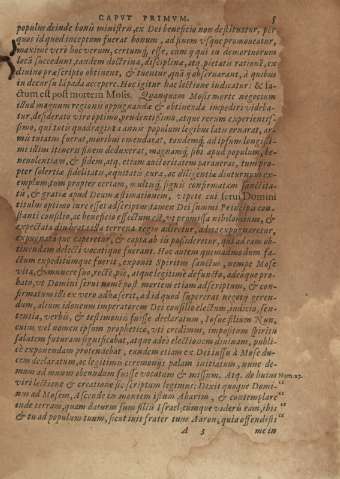 CAPVT PRIMVM. 5
populus deinde bonis ministris, ex Dei beneficio non destituitur, per
quos id quod inceptum fuerat bonum, ad finem vsque promoueatur,
maximè verò hoc verum, certumq́; esse, cum y qui in demortuorum
locũ succedunt, eandem doctrina, disciplina, atq; pietatis ratione, ex
diuino præscripto obtinent, & tuentur, quã y obseruarant, à quibus
in decursu lãpada accepere. Hoc igitur hac lectione indicatur: & fa-
ctum est post mortem Mosis. Quanquam Mosis morte negocium
illud magnum regionis oppugnandæ & obtinendæ impediri videba-
tur, desiderato viro optimo, prudentissimo, atque rerum experientis-
simo, qui totis quadraginta annis populum legibus latis ornarat, ar-
mis tutatus fuerat, moribus emendarat, eundemq́; ad ipsum longissi-
mi illius itineris finem deduxerat, magnamq́; sibi apud populum, be-
neuolentiam, & fidem, atq; etiam auctoritatem pararat, tum pro-
pter solertiæ fidelitatis, æquitatis curæ, ac diligentiæ diuturnum ex-
emplum, tum propter certam, multisq́; signis confirmatam sanctita-
tis, & gratiæ apud Deum æstimationem, vtpote cui serui Domini
titulus optimo iure esset adscriptus: tamen Dei summi Principis con-
stanti consilio, ac beneficio effectum est, vt promissa nihilominus, &
expectata diu Israëli terrena regio adiretur, adita expugnaretur,
expugnata caperetur, & capta ab iis possideretur, qui ad eam ob-
tinendam delecti vocatique fuerant. Hoc autem quemadmodum fa-
ctum expeditumque fuerit, exponit Spiritus sanctus, nempe Mose
vita, & munere suo, rectè, piè, atque legitimè defuncto, adeoque pro-
bato, vt Domini serui nomẽ post mortem etiam adscriptum, & con-
firmatum illi ex vero adhæserit, ad id quod supererat negocij geren-
dum, alium idoneum imperatorem Dei consilio electum, indicio, sen-
tentia, verbis, & testimoniis fuisse declaratum, Iosue filium Nun,
cuius vel nomen ipsum propheticè, vti credimus, impositum spiritu
salutem futuram significabat, atque adeo electionem diuinam, publi-
cè exponendam protendebat, eundem etiam ex Dei iussu à Mose du-
cem declaratum, ac legitimis ceremoniis palam initiatum, nunc de-
mum ad munus obeundum fuisse vocatum & missum. Atq; de huius Num.27.
viri lectione & creatione sic scriptum legimus: Dixit quoque Domi- “
nus ad Mosem, Ascende in montem istum Abarim, & contemplare “
inde terram, quam daturus sum filiis Israel, cumque videris eam, ibis “
& tu ad populum tuum, sicut iuit frater tuus Aaron, quia offendistis “
A 3 me in